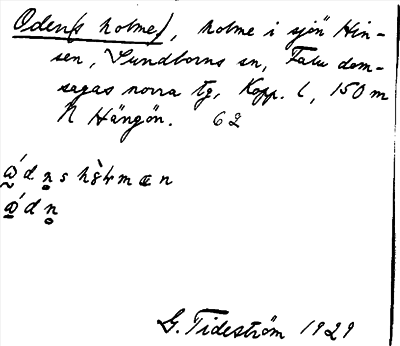 Oden(s holme), holme i sjön Hin-
sen, Sundborns sn, Falu dom-
sagas norra tg, Kopp. l, 150 m
N Hängön. 62
G. Tideström 1929